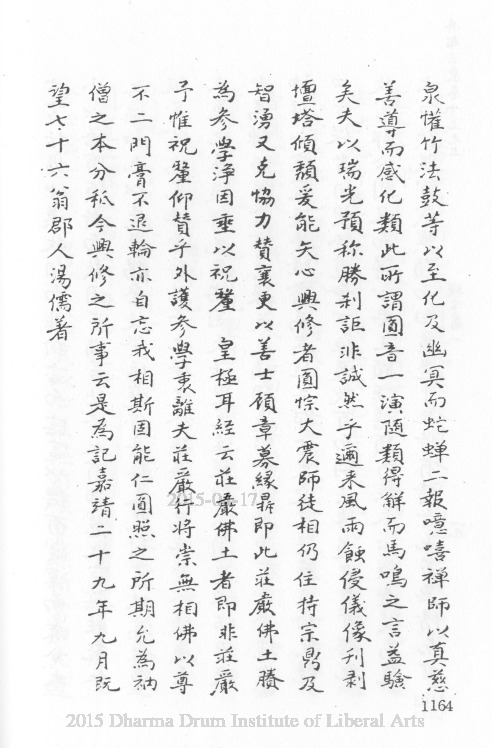 泉懽竹法鼓荨以至化及幽冥而蛇蝉二報噫嘻禅師以真慈
善導而感化類此所謂圓音一演随類得解而馬鳴之言益驗
矣夫以瑞光預称勝利詎非誠然乎邇来風雨蝕侵儀像刋剥
壇塔傾頽爰能矢心興修者圓悰大震師徒相仍住持宗鼎及
智湧又克恊力賛襄更以善士顾章募縁鼎即此莊嚴佛土勝
為参學浄因垂以祝釐 皇極耳経云莊嚴佛土者即非莊嚴
予惟祝釐仰賛乎外護参學衷離夫莊嚴行将崇無相佛以尊
不二門膏不退輪亦自忘我相斯固能仁圓照之所期允為衲
僧之本分秖今興修之所事云是為記嘉靖二十九年九月既
望七十六翁郡人湯儒著
1164
2015-03-17
2015 Dharma Drum Institute of Liberal Arts